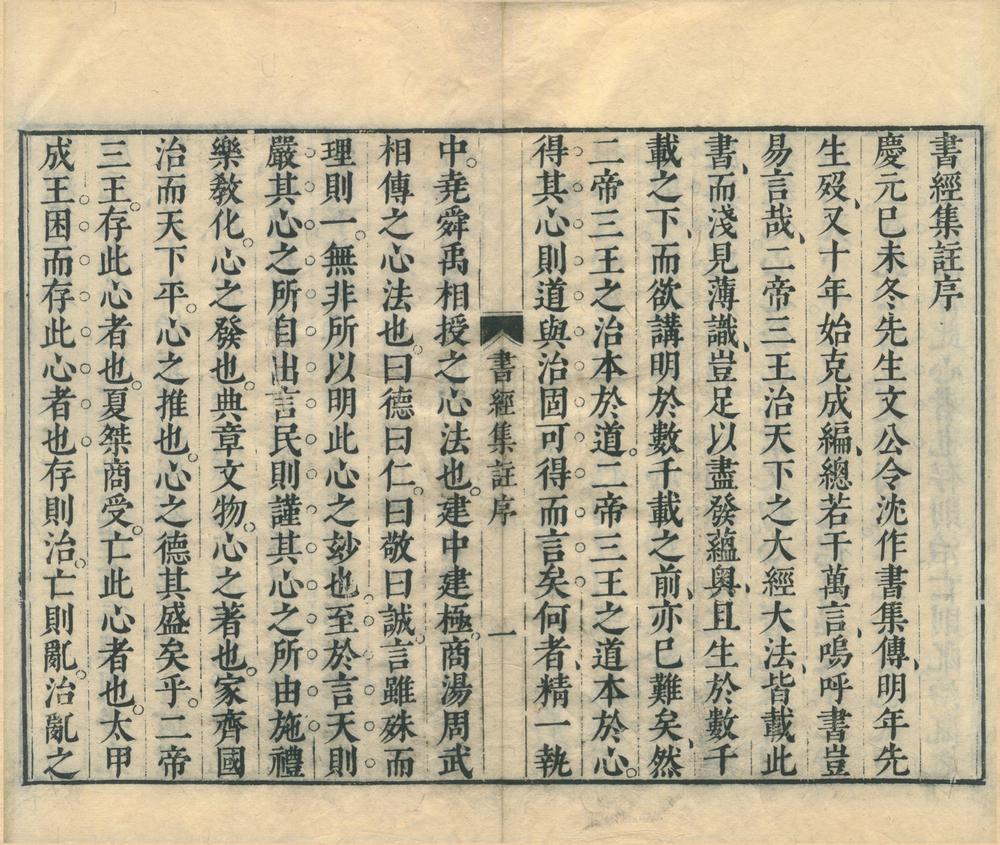 書經集註序
慶元已未冬先生文公令沈作書集傳、明年先
生歿、又十年始克成編、總若干萬言、嗚呼書豈
易言哉、二帝三王治天下之大經大法、皆載此
書、而淺見薄識、豈足以盡發蘊奧、且生於數千
載之下、而欲講明於數千載之前、亦已難矣、然
二帝三王之治本於道。二帝三王之道本於心。
得其心則道與治固可得而言矣何者、精一執
書經集註序 一
中。堯舜禹相授之心法也。建中建極。商湯周武
相傳之心法也。曰德曰仁。曰敬曰誠。言雖殊而
理則一。無非所以明此心之玅也。至於言天則
嚴其心之所自出言民則謹其心之所由施禮
樂教化。心之發也。典章文物。心之著也。家齊國
治而天下平。心之推也。心之德其盛矣乎。二帝
三王。存此心者也。夏桀商受。亡此心者也。太甲
成王困而存此心者也存則治。亡則亂。治亂之